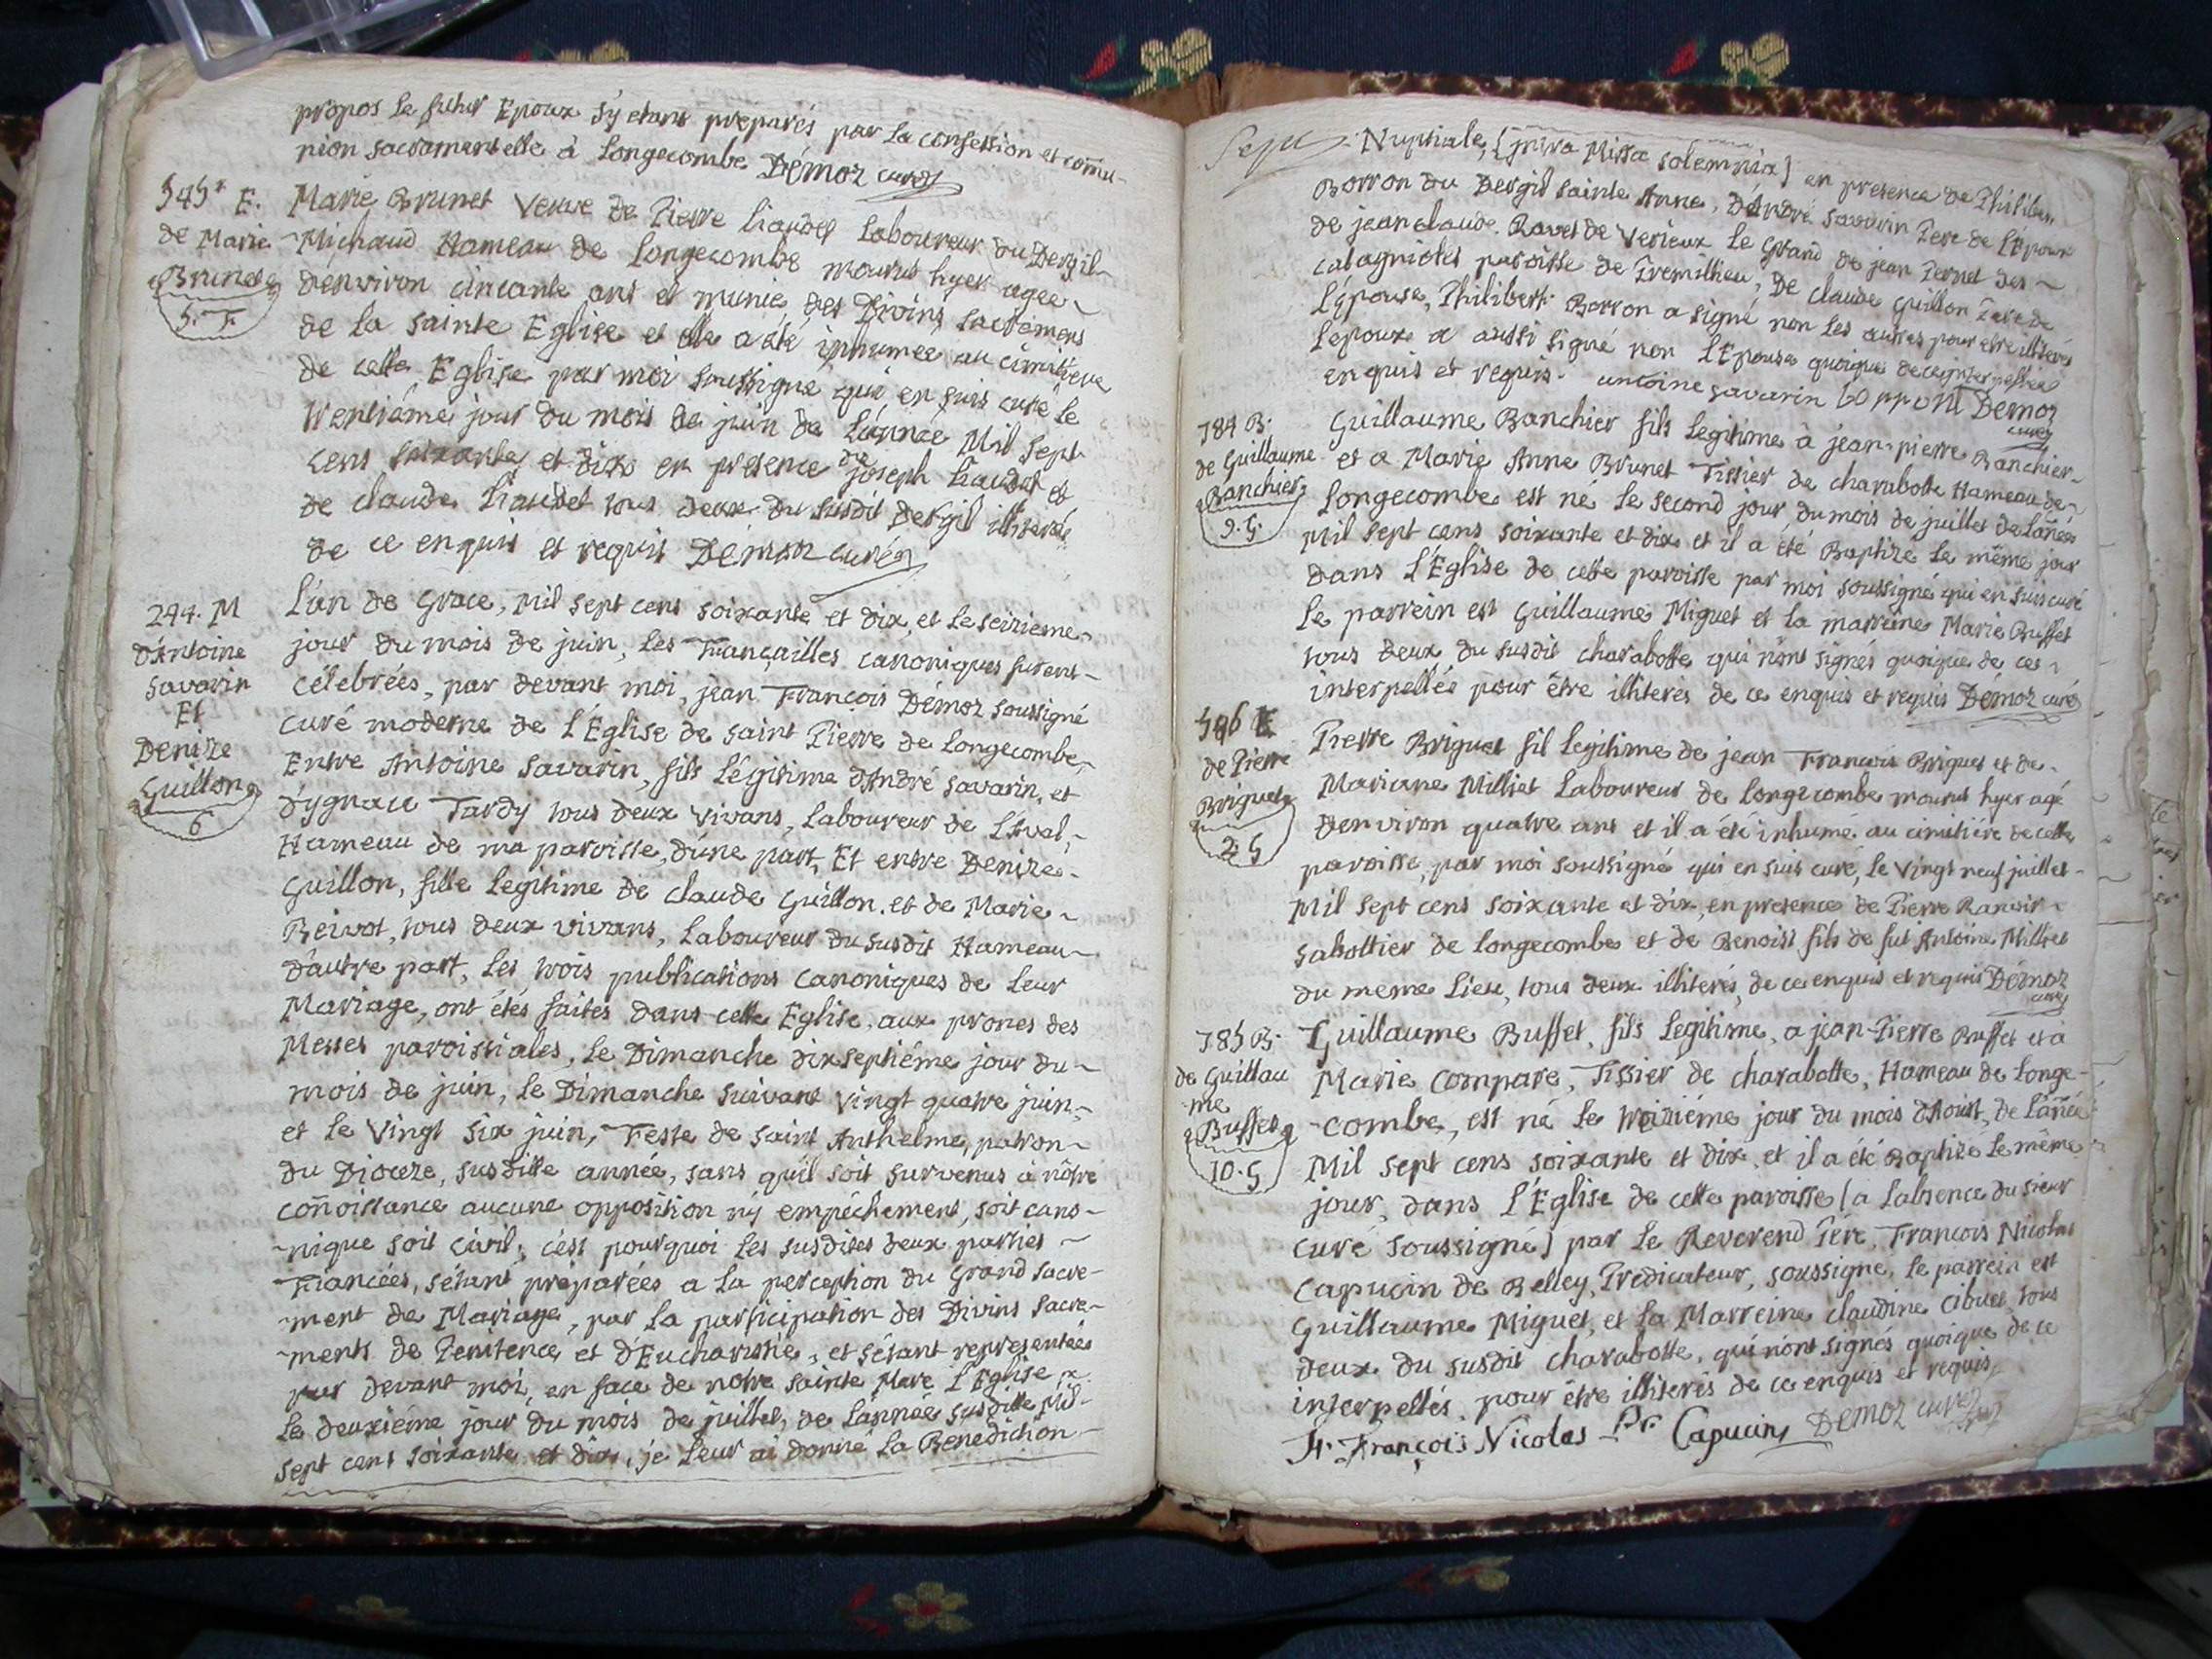 propos le futur Epoux s'y etant préparés par la confession et commu-
nion sacramentelle à Longecombe Démoz curé
545e E.
de Marie
Brunet
5. F.
Marie Brunet Veuve de Pierre Liaudet Laboureur du Dergil-
-Michaud Hameau de Longecombe mourut hyer agee
d'environ cincante ans et munie des Divins sacremens
de la sainte Eglise et elle a été inhumée au cimitiere
de cette Eglise par moi soussigné qui en suis curé le
trentiéme jour du mois de juin de L'année Mil sept
cens soixante et dix en presence de joseph Liaudet et
de claude Liaudet tous deux du susdit Dergil illiterés
de ce enquis et requis Démoz curé
244. M
d'Antoine
Savarin
Et
Denize
Guillon
6
L'an de Grace, Mil sept cens soixante et dix, et le seizieme
jour du mois de juin, les Fiançailles canoniques furent
célebrées, par devant moi, jean François Démoz soussigné
curé moderne de l'Eglise de saint Pierre de Longecombe,
Entre Antoine Savarin, fils Légitime d'André Savarin, et
d'ygnace Tardy tous deux vivans, Laboureur de Lival,
Hameau de ma paroisse, d'une part, Et entre Denize
Guillon, fille Legitime de claude Guillon et de Marie
Beivot, tous deux vivans, Laboureur du susdit Hameau
d'autre part, Les trois publications canoniques de Leur
Mariage, ont étés faites dans cette Eglise, aux prones des
Messes paroissiales, Le Dimanche dixseptiéme jour du
mois de juin, le Dimanche suivant vingt quatre juin,
et le Vingt six juin, Feste de saint Anthelme, patron
du Dioceze, susditte année, sans qu'il soit survenus à nôtre
connoissance aucune opposition ny empéchement, soit cano-
-nique soit civil; c'est pourquoi les susdites deux parties
Fiancées, s'étant préparées a la perception du Grand sacre-
-ment de Mariage, par la participation des Divins sacre-
-ments de Penitence et d'Eucharistie, et s'étant representées
par devant moi, en face de notre sainte Mere L'Eglise
Le deuxiéme jour du mois de juillet, de L'année susditte Mil-
sept cens soixante et dix, je Leur ai donné La Benediction
Nuptiale, (intra Missæ solemnia) en presence de Philibert
Borron du Dergil sainte Anne, d'André Savarin Pere de L'Epoux
de jean claude Ravet de Verieux le Grand de jean Pernet des
calagnioles paroisse de Premillieu, De claude Guillon Pere de
L'épouse, Philibert Borron a signé non les autres pour etre illiterés
L'époux a aussi signé non L'Epouse quoique de ce interpellée
enquis et requis. antoine savarin borron Démoz
curé
784 B.
de Guillaume
Banchier
9. G.
Guillaume Banchier fils Legitime à jean-pierre Banchier
et a Marie Anne Brunet Tissier de charabotte Hameau de
Longecombe est né le second jour du mois de juillet de L'année
Mil sept cens soixante et dix et il a été Baptizé le même jour
dans l'Eglise de cette paroisse par moi soussigné qui en suis curé
Le parrein est Guillaume Miguet et la marreine Marie Buffet
tous deux du susdit charabotte qui n'ont signés quoique de ce
interpellée pour être illiterés de ce enquis et requis Démoz curé
546 E
de Pierre
Briguet
2. G
Pierre Briguet fil legitime de jean François Briguet et de
Mariane Milliet Laboureur de Longecombe mourut hyer agé
d'environ quatre ans et il a été inhumé au cimitiére de cette
paroisse, par moi soussigné qui en suis curé, le Vingt neuf juillet
Mil sept cens soixante et dix, en presence de Pierre
sabottier de Longecombe et de Benoist fils de fut Antoine Milliet
du meme Lieu, tous deux illiterés, de ce enquis et requis Démoz
curé
785 B.
de Guillau
-me
Buffet
10. G
Guillaume Buffet, fils Legitime, a jean-Pierre Buffet et à
Marie Compare, Tissier de charabotte, Hameau de Longe-
-combe, est né le troiziéme jour du mois d'Aoust, de L'année
Mil sept cens soixante et dix, et il a été Baptizé le même
jour, dans l'Eglise de cette paroisse (a L'absence du sieur
curé soussigné) par le Reverend Pére, François Nicolas
Capucin de Belley, Predicateur, soussigné, Le parrein est
Guillaume Miguet, et la Marreine claudine Cibuet, tous
deux du susdit charabotte, qui n'ont signés quoique de ce
interpellés, pour être illiterés de ce enquis et requis.
f. François Nicolas Pr. Capucin Démoz curé